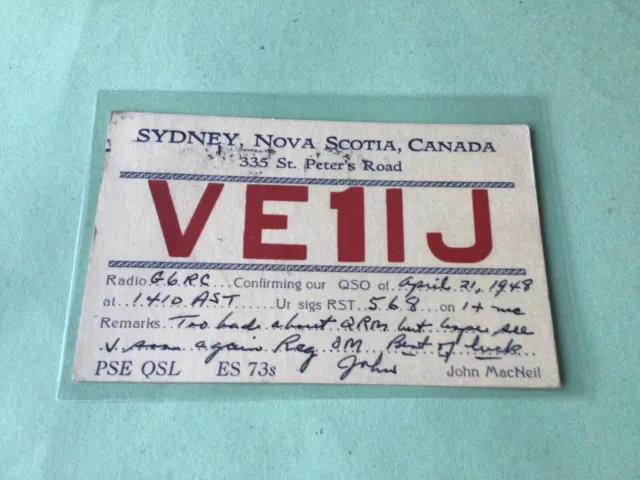 SYDNEY, NOVA SCOTIA, CANADA
335 St. Peter's Road
VE1IJ
Radio G6RC Confirming our QSO of April 21, 1948
at 1410 AST Ur sigs RST 568 on 14 mc
Remarks Too bad about QRM but hope see
U soon again Reg OM Best of luck
PSE QSL ES 73s John John MacNeil